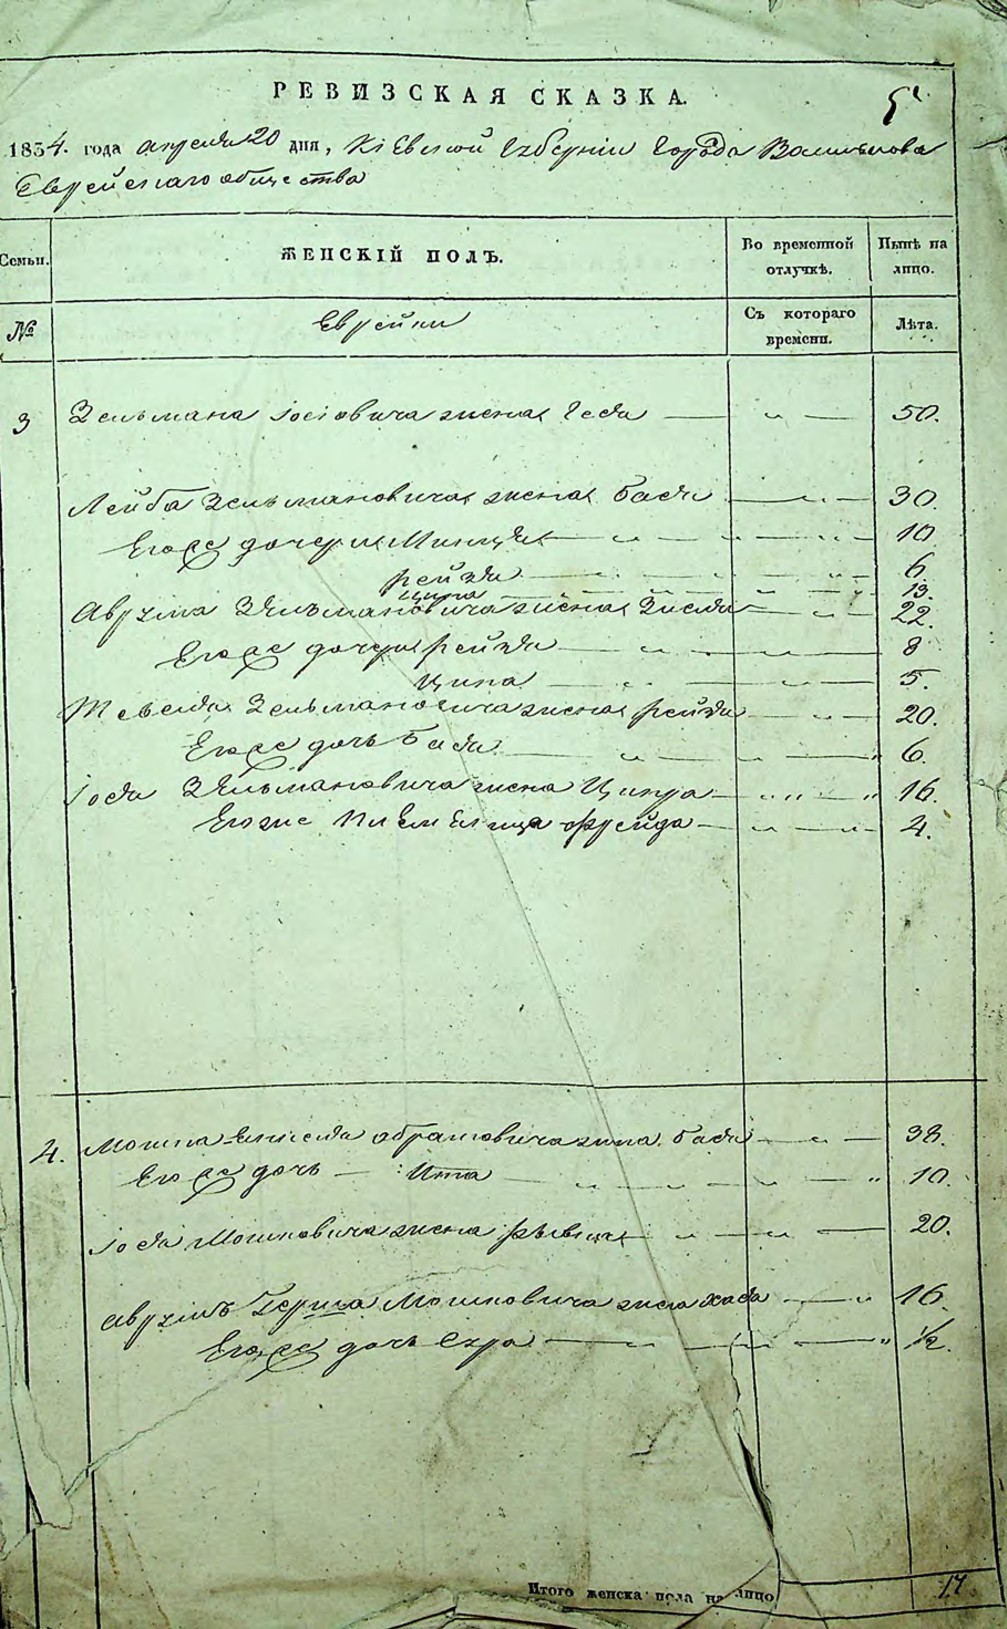 РЕВИЗСКАЯ СКАЗКА.
5
1834. года апреля 20 дня, Кіевской Губерніи Города Василькова
Еврейскаго общества
Семьи. ЖЕНСКІЙ ПОЛЪ. Во временной отлучкѣ. Нынѣ на лицо.
№ Еврейки Съ котораго времени. Лѣта.
3 Зельмана Іосіовича жена 50.
Лейба Зельмановича жена Бася 30.
Его же дочери 10
Рейзя 6.
Ципа 13.
Аврума Зельмановича жена Зисля 22.
Его же дочери Рейзя 8
Ципа 5.
Тевеля Зельмановича жена Рейзя 20.
Его же дочь Бася 6.
Іося Зельмановича жена Ципра 16.
Его же племеница Фрейда 4.
4. Мошка Абрамовича жена Бася 38.
Его же дочь Ита 10.
Іося Мошковича жена 20.
Аврумъ Герша Мошковича жена Хася 16.
Его же дочь Сура 1/2.
Итого женска пола на лицо 17